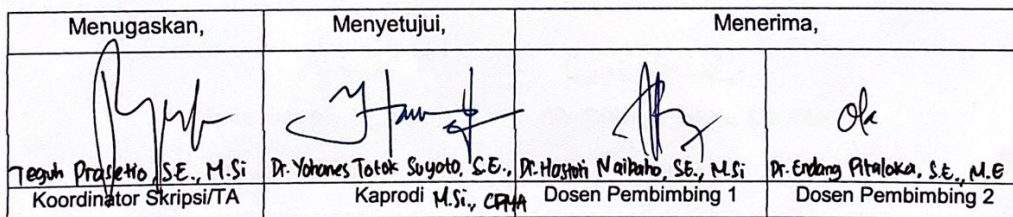 Menugaskan, Menyetujui, Menerima,
ok
Teguh Prasetio, S.E., M.Si Dr. Yohanes Totok Suyoto, S.E., Dr. Hastuti Naibaho, SE., M.Si Dr. Endang Pitaloka, S.E., M.E
Koordinator Skripsi/TA Kaprodi M.Si., CPMA Dosen Pembimbing 1 Dosen Pembimbing 2